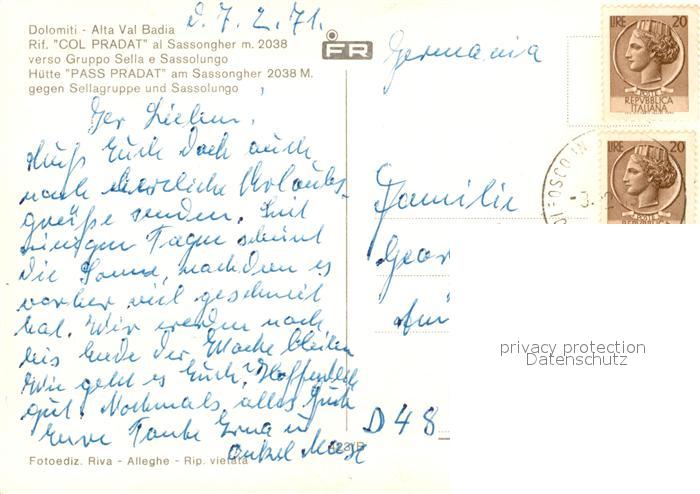 d. 7.2.71.
Dolomiti - Alta Val Badia
Rif. "COL PRADAT" al Sassongher m. 2038
verso Gruppo Sella e Sassolungo
Hütte "PASS PRADAT" am Sassongher 2038 M.
gegen Sellagruppe und Sassolungo
FR
Ihr Lieben,
Muß Euch doch auch
noch herzliche Urlaubs-
grüße senden. Seit
einigen Tagen scheint
die Sonne, nachdem es
vorher viel geschneit
hat. Wir werden noch
bis Ende der Woche bleiben
Wie geht es Euch? Hoffentlich
gut. Nochmals alles Gute
Eure Tante Erna u
Onkel Max
Fotoediz. Riva - Alleghe - Rip. vietata
Germania
Familie
Geor
D 48
LIRE 20
POSTE
REPVBBLICA
ITALIANA
LIRE 20
POSTE
REPVBBLICA
privacy protection
Datenschutz